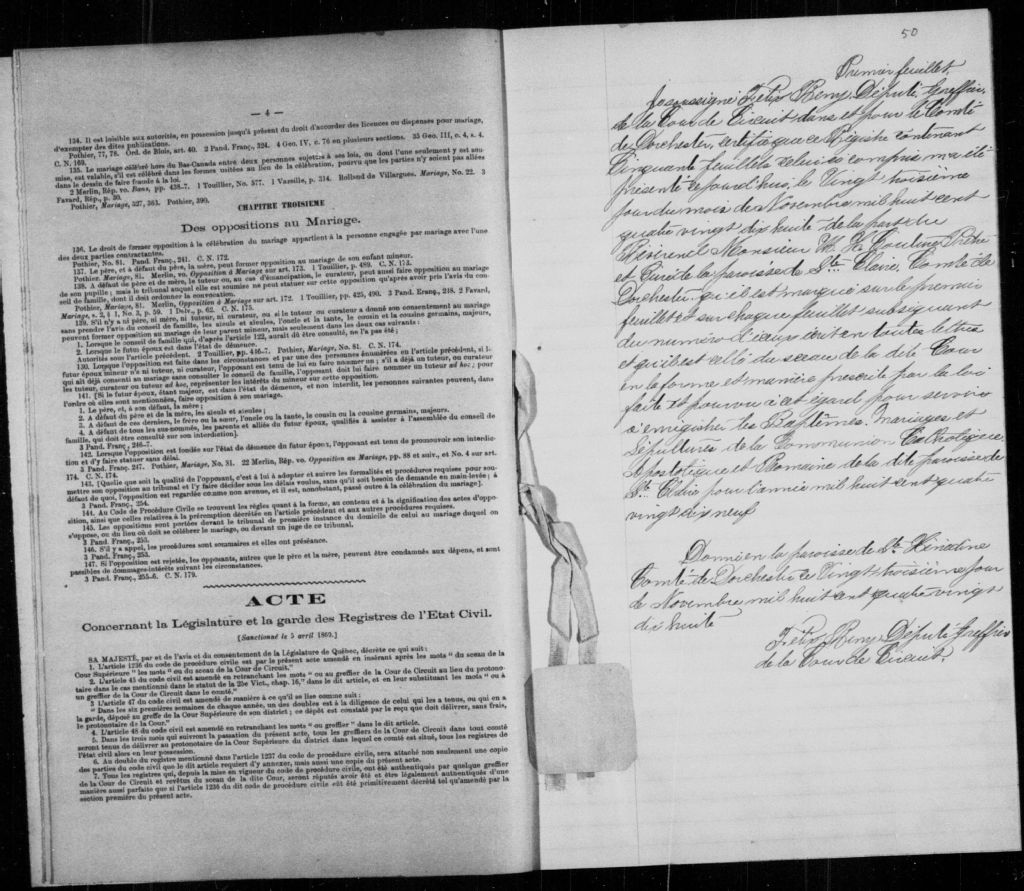 — 4 —
134. Il est loisible aux autorités, en possession jusqu'à présent du droit d'accorder des licences ou dispenses pour mariage,
d'exempter des dites publications.
Pothier, 77, 78. Ord. de Blois, art. 40. 2 Pand. Franç., 324. 4 Geo. IV, c. 76 en plusieurs sections. 35 Geo. III, c. 4, s. 4.
C. N. 169.
135. Le mariage célébré hors du Bas-Canada entre deux personnes sujettes à ses lois, ou dont l'une seulement y est sou-
mise, est valable, s'il est célébré dans les formes usitées au lieu de la célébration, pourvu que les parties n'y soient pas allées
dans le dessin de faire fraude à la loi.
2 Merlin, Rép. vo. Bans, pp. 438-7. 1 Touillier, No. 577. 1 Vazille, p. 314. Rolland de Villargues. Mariage, No. 22. 3
Favard, Rép., p. 30.
Pothier, Mariage, 327, 363. Pothier, 390.
CHAPITRE TROISIEME
Des oppositions au Mariage.
136. Le droit de former opposition à la célébration du mariage appartient à la personne engagée par mariage avec l'une
des deux parties contractantes.
Pothier, No. 81. Pand. Franç., 241. C. N. 172.
137. Le père, et à défaut du père, la mère, peut former opposition au mariage de son enfant mineur.
Pothier, Mariage, 81. Merlin, vo. Opposition à Mariage sur art. 173. 1 Touillier, p. 489. C. N. 173.
138. A défaut de père et de mère, le tuteur ou, au cas d'émancipation, le curateur, peut aussi faire opposition au mariage
de son pupille; mais le tribunal auquel elle est soumise ne peut statuer sur cette opposition qu'après avoir pris l'avis du con-
seil de famille, dont il doit ordonner la convocation.
Pothier, Mariage, 81. Merlin, Opposition à Mariage sur art. 172. 1 Touillier, pp. 425, 490. 3 Pand. Franç., 248. 2 Favard,
Mariage, s. 2, § 1, No. 3, p. 59. 1 Delv., p. 62. C. N. 175.
139. S'il n'y a ni père, ni mère, ni tuteur, ni curateur, ou si le tuteur ou curateur a donné son consentement au mariage
sans prendre l'avis du conseil de famille, les aïeuls et aïeules, l'oncle et la tante, le cousin et la cousine germains, majeurs,
peuvent former opposition au mariage de leur parent mineur, mais seulement dans les deux cas suivants :
1. Lorsque le conseil de famille qui, d'après l'article 122, aurait dû être consulté, ne l'a pas été ;
2. Lorsque le futur époux est dans l'état de démence.
Autorités sous l'article précédent. 2 Touillier, pp. 446-7. Pothier, Mariage, No. 81. C. N. 174.
130. Lorsque l'opposition est faite dans les circonstances et par une des personnes énumérées en l'article précédent, si le
futur époux mineur n'a ni tuteur, ni curateur, l'opposant est tenu de lui en faire nommer un ; s'il a déjà un tuteur, ou curateur
qui ait déjà consenti au mariage sans consulter le conseil de famille, l'opposant doit lui faire nommer un tuteur ad hoc ; pour
les tuteur, curateur ou tuteur ad hoc, représenter les intérêts du mineur sur cette opposition.
141. [Si le futur époux, étant majeur, est dans l'état de démence, et non interdit, les personnes suivantes peuvent, dans
l'ordre où elles sont mentionnées, faire opposition à son mariage.
1. Le père, et, à son défaut, la mère ;
2. A défaut du père et de la mère, les aïeuls et aïeules ;
3. A défaut de ces derniers, le frère ou la sœur, l'oncle ou la tante, le cousin ou la cousine germains, majeurs.
4. A défaut de tous les sus-nommés, les parents et alliés du futur époux, qualifiés à assister à l'assemblée du conseil de
famille, qui doit être consulté sur son interdiction].
3 Pand. Franç., 246-7.
142. Lorsque l'opposition est fondée sur l'état de démence du futur époux, l'opposant est tenu de promouvoir son interdic-
tion et d'y faire statuer sans délai.
3 Pand. Franç. 247. Pothier, Mariage, No. 81. 22 Merlin, Rép. vo. Opposition au Mariage, pp. 88 et suiv., et No. 4 sur art.
174. C. N. 174.
143. [Quelle que soit la qualité de l'opposant, c'est à lui à adopter et suivre les formalités et procédures requises pour sou-
mettre son opposition au tribunal et l'y faire décider sous les délais voulus, sans qu'il soit besoin de demande en main-levée ; à
défaut de quoi, l'opposition est regardée comme non avenue, et il est, nonobstant, passé outre à la célébration du mariage].
3 Pand. Franç., 254.
144. Au Code de Procédure Civile se trouvent les règles quant à la forme, au contenu et à la signification des actes d'oppo-
sition, ainsi que celles relatives à la péremption décrétée en l'article précédent et aux autres procédures requises.
145. Les oppositions sont portées devant le tribunal de première instance du domicile de celui au mariage duquel on
s'oppose, ou du lieu où doit se célébrer le mariage, ou devant un juge de ce tribunal.
3 Pand. Franç., 253.
146. S'il y a appel, les procédures sont sommaires et elles ont préséance.
3 Pand. Franç., 253.
147. Si l'opposition est rejetée, les opposants, autres que le père et la mère, peuvent être condamnés aux dépens, et sont
passibles de dommages-intérêts suivant les circonstances.
3 Pand. Franç., 255-6. C. N. 179.
ACTE
Concernant la Législature et la garde des Registres de l'Etat Civil.
[Sanctionné le 5 avril 1869.]
SA MAJESTÉ, par et de l'avis et du consentement de la Législature de Québec, décrète ce qui suit :
1. L'article 1236 du code de procédure civile est par le présent acte amendé en insérant après les mots "du sceau de la
Cour Supérieure" les mots "ou du sceau de la Cour de Circuit."
2. L'article 41 du code civil est amendé en retranchant les mots "ou au greffier de la Cour de Circuit au lieu du protono-
taire dans le cas mentionné dans le statut de la 25e Vict., chap. 16," dans le dit article, et en leur substituant les mots "ou à
un greffier de la Cour de Circuit dans le comté."
3 L'article 47 du code civil est amendé de manière à ce qu'il se lise comme suit :
"Dans les six premières semaines de chaque année, un des doubles est à la diligence de celui qui les a tenus, ou qui en a
la garde, déposé au greffe de la Cour Supérieure de son district ; ce dépôt est constaté par le reçu que doit délivrer, sans frais,
le protonotaire de la Cour."
4. L'article 48 du code civil est amendé en retranchant les mots "ou greffier" dans le dit article.
5. Dans les trois mois qui suivront la passation du présent acte, tous les greffiers de la Cour de Circuit dans tout comté
seront tenus de délivrer au protonotaire de la Cour Supérieure du district dans lequel ce comté est situé, tous les registres de
l'état civil alors en leur possession.
6. Au double du registre mentionné dans l'article 1237 du code de procédure civile, sera attaché non seulement une copie
des parties du code civil que le dit article requiert d'y annexer, mais aussi une copie du présent acte.
7. Tous les registres qui, depuis la mise en vigueur du code de procédure civile, ont été authentiqués par quelque greffier
de la Cour de Circuit et revêtus du sceau de la dite Cour, seront réputés avoir été et être légalement authentiqués d'une
manière aussi parfaite que si l'article 1236 du dit code de procédure civile eût été primitivement décrété tel qu'amendé par la
section première du présent acte.
50
Premier feuillet.
Je soussigné Félix Remy, Député Greffier,
de la Cour de Circuit dans et pour le Comté
de Dorchester, certifie que ce Régistre contenant
Cinquante feuillets celui-ci compris m'a été
présenté ce jourd'hui, le Vingt troisième
jour du mois de Novembre mil huit cent
quatre vingt dix huit de la part du
Révérend Monsieur Prêtre
et Curé de la paroisse de Ste. Claire, Comté de
Dorchester qu'il est marqué sur le premier
feuillet et sur chaque feuillet subséquent
du numéro d'iceux écrit en toutes lettres
et qu'il est scellé du sceau de la dite Cour
en la forme et manière prescrite par la loi
faite et pourvu à cet égard, pour servir
à enregistrer les Baptêmes, mariages et
Sépultures de la Communion Catholique
Apostolique et Romaine de la dite paroisse de
pour l'année mil huit cent quatre
vingt dix neuf
Donné en la paroisse de Ste. Hénédine
Comté de Dorchester ce Vingt troisième jour
de Novembre mil huit cent quatre vingt
dix huit
Félix Remy, Député Greffier
de la Cour de Circuit.